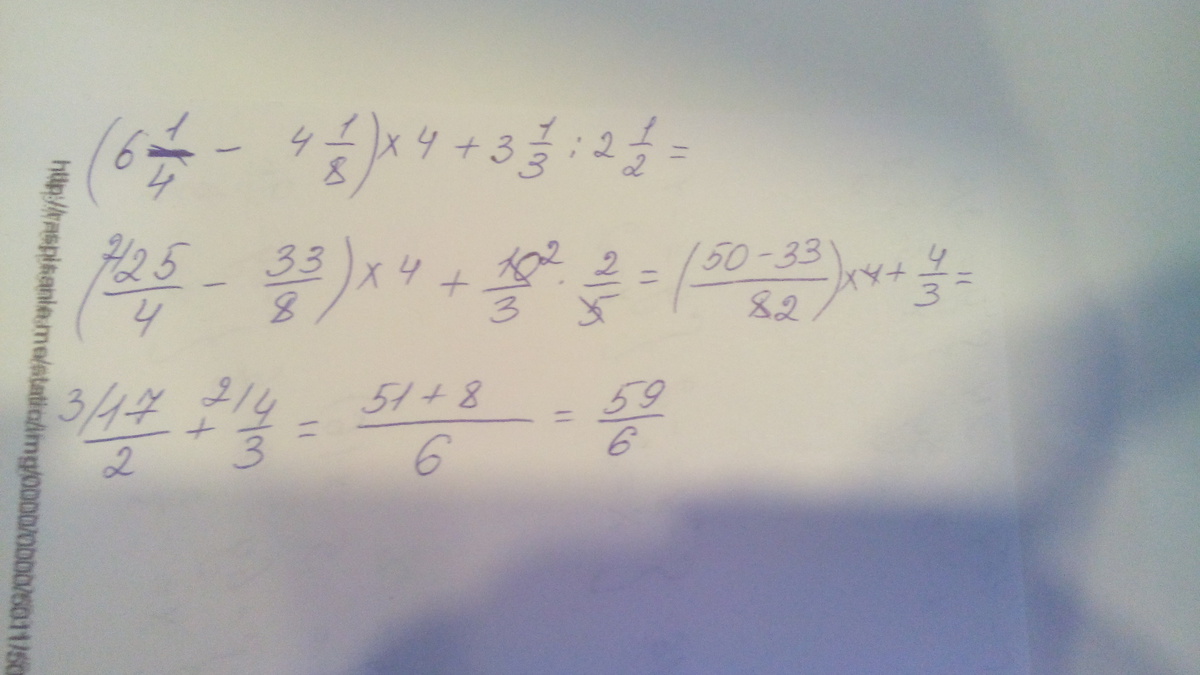 (6 1/4 - 4 1/8) × 4 + 3 1/3 : 2 1/2 =
(2/25/4 - 33/8) × 4 + 10²/3 · 2/5 = ((50 - 33)/82) × 4 + 4/3 =
3/17/2 + 2/4/3 = (51 + 8)/6 = 59/6
http://raspisanie.me/static/img/0000/0000/5011/50